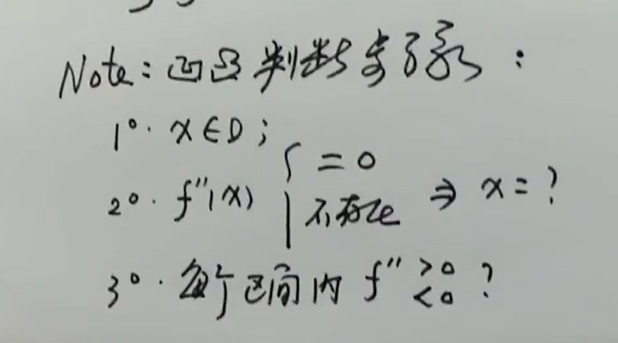 Note: 凹凸判断步骤:
1°. x∈D;
2°. f''(x) { =0 不存在 ⇒ x=?
3°. 每个区间内 f'' >0 <0 ?